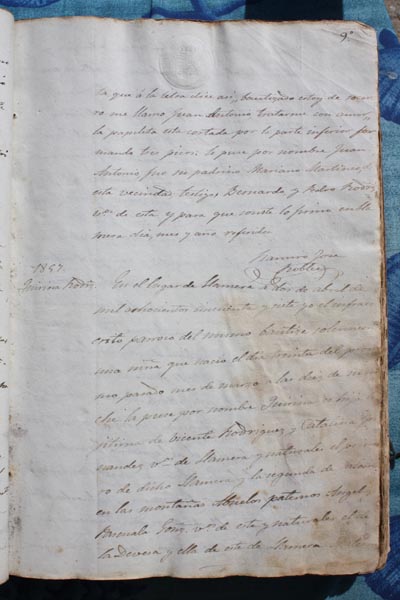 9.
ta que á la letra dice asi, bautizado estoy de
ro me llamo Juan Antonio tratarme con
la papeleta esta cortada por la parte inferior for
mando tres picos: le puse por nombre Juan
Antonio, fue su padrino Mariano Martinez, de
esta vecindad, testigos Bernardo y Pedro Rodrz
vs. de esta, y para que conste lo firmo en
mera dia, mes y año referidos
Ramiro Jose
Robles
1857.
Rodrz.
En el lugar de Llamera á dos de abril de
mil ochocientos cincuenta y siete yo el infraes
crito parroco del mismo bautizé solemnem
una niña que nacio el dia treinta del pro
mo pasado mes de marzo a las diez de
che la puse por nombre es hija
gitima de Vicente Rodriguez y Catarina
nandez vs. de Llamera y naturales el
ro de dicho Llamera y la segunda de
en las montañas Abuelos paternos Angel y
Pascuala Gonz. vs. de esta y naturales el de
la Devesa y ella de este de Llamera